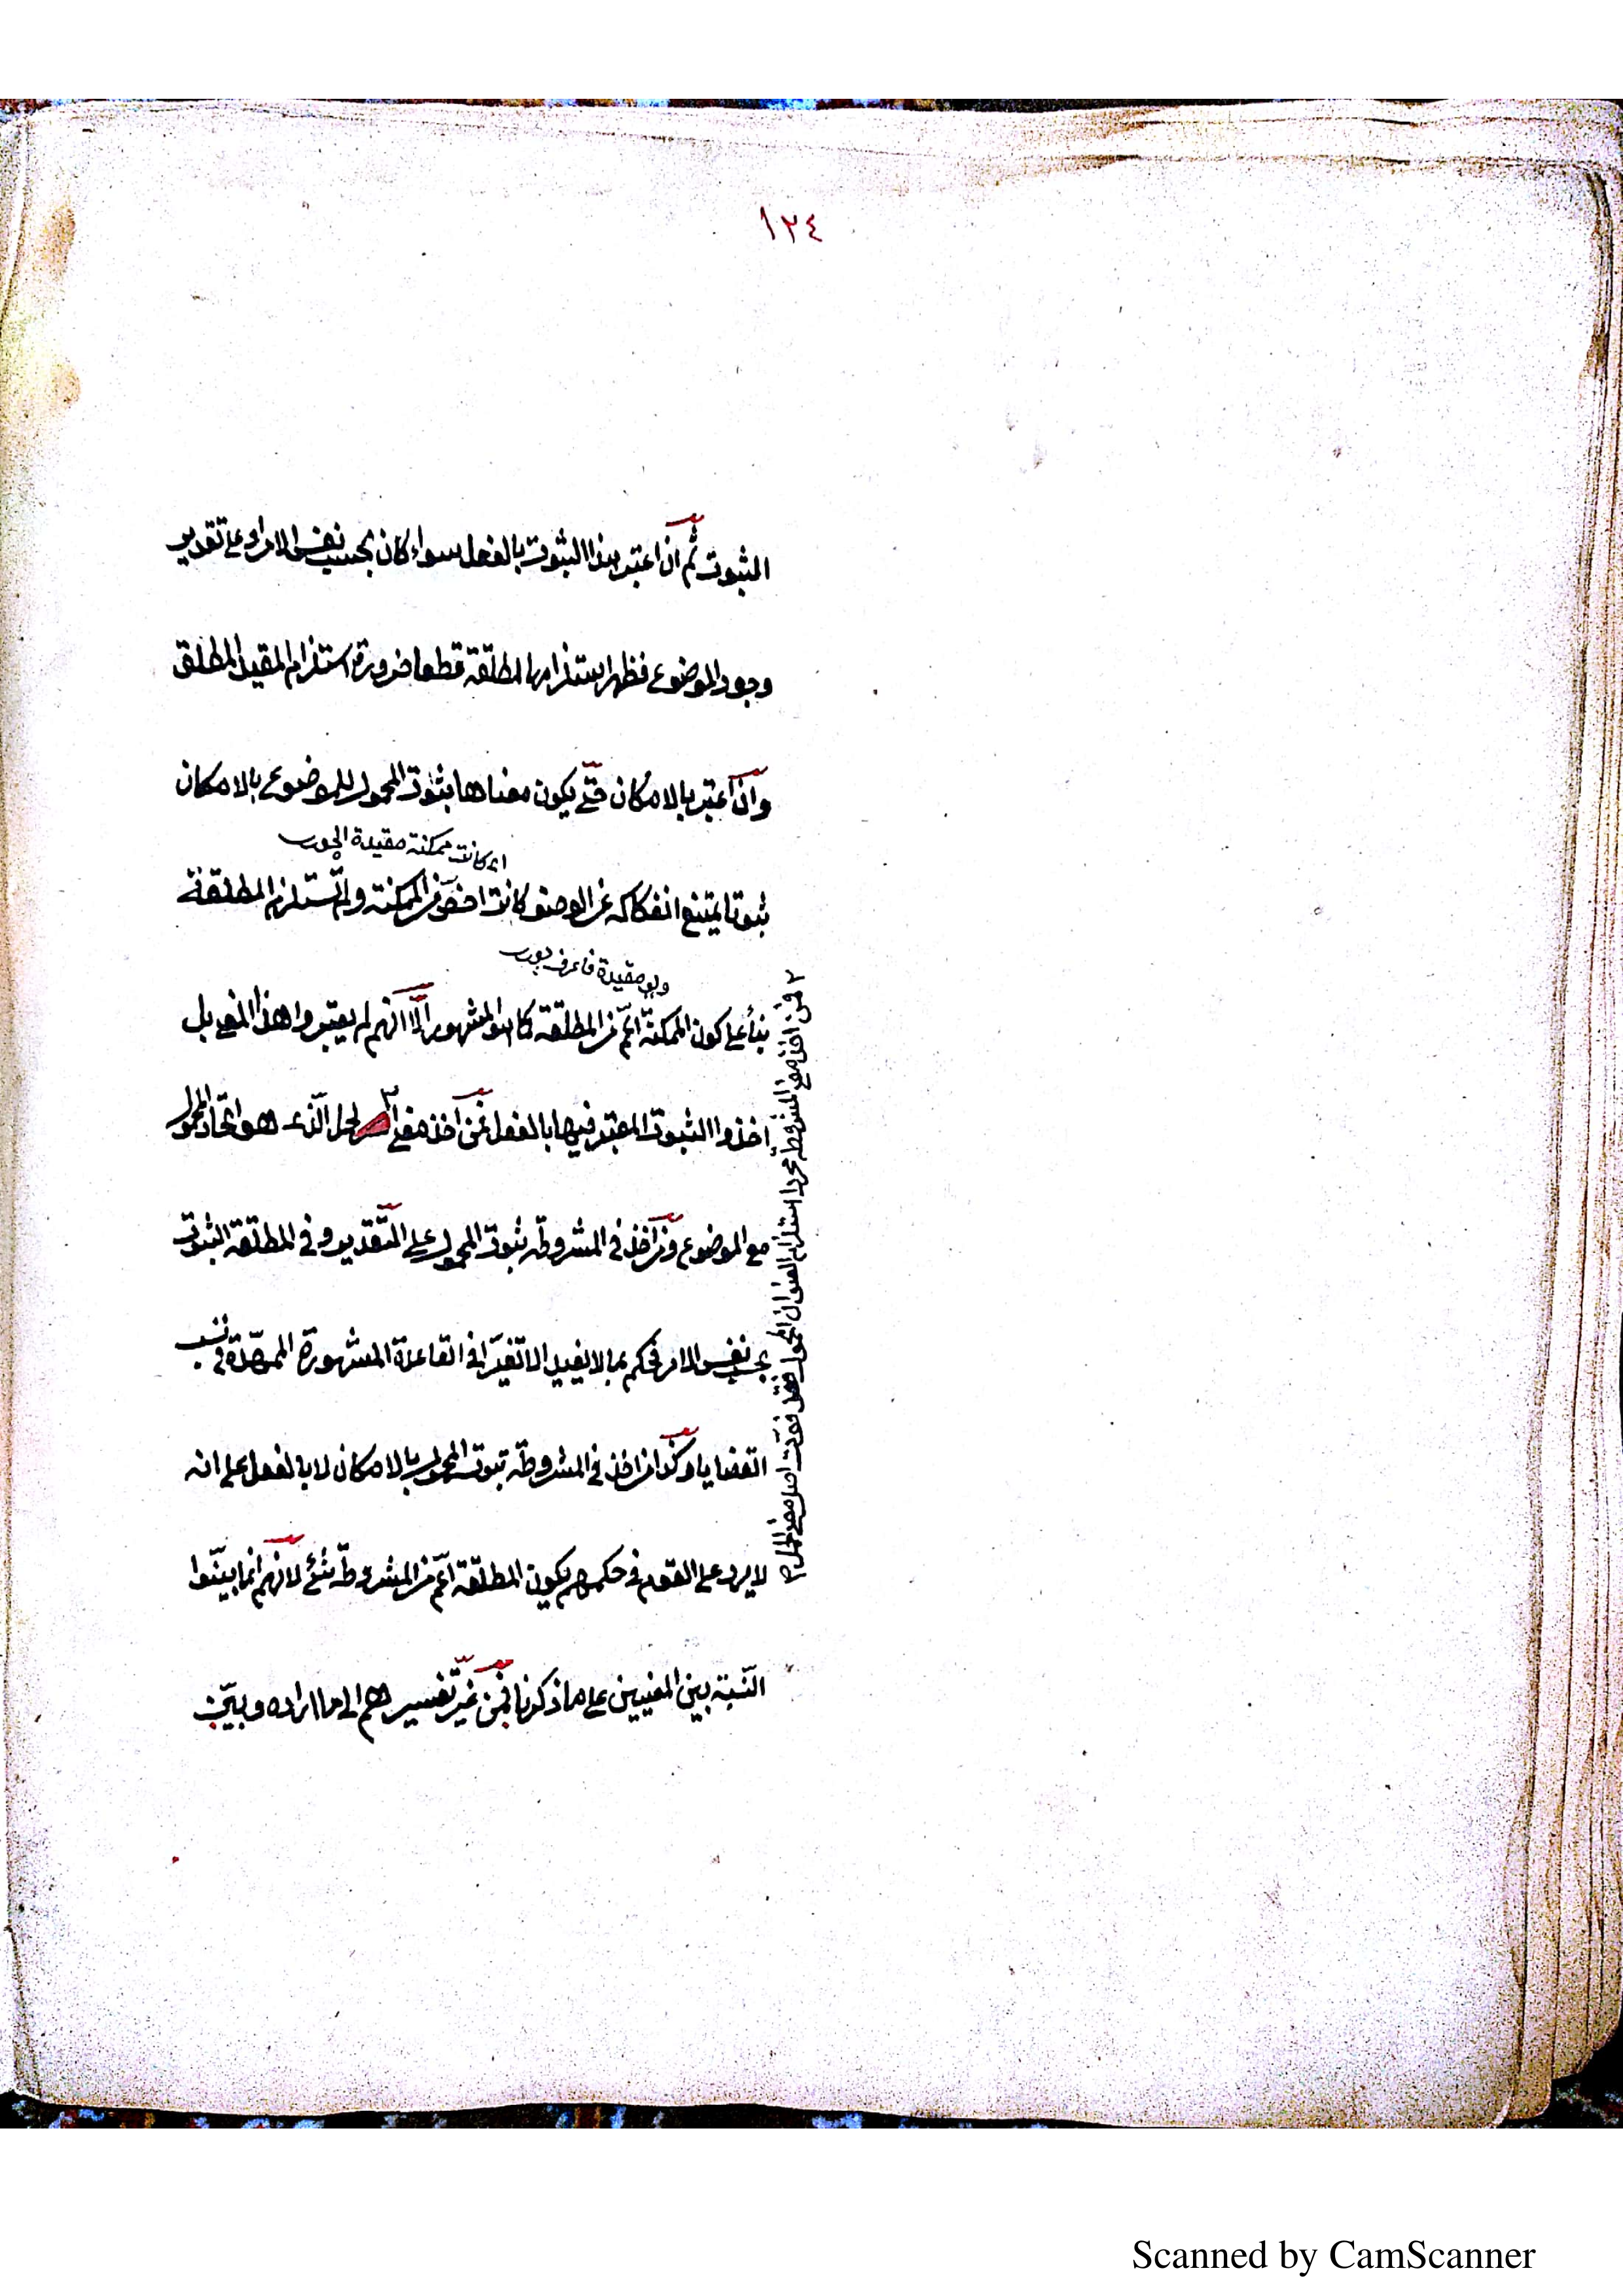 ١٢٤
الثبوت ثم ان اعتبر هذا الثبوت بالفعل سواء كان بحسب نفس الامر او على تقدير
وجود الموضوع فظهر استلزامها المطلقة قطعا ضرورة استلزام المقيد المطلق
وان اعتبر بالامكان حتى يكون معناها ثبوت المحمول للموضوع بالامكان
اى كانت ممكنة مقيدة
ثبوتا يمتنع انفكاكه عن الوصف كانت اخص من الممكنة ولم تستلزم المطلقة
ولو مقيدة فاعرف
بناء على كون الممكنة اعم من المطلقة كما هو المشهور الا انهم لم يعتبروا هذا المعنى بل
اخذوا الثبوت المعتبر فيها بالفعل فمن اخذ معنى الحمل الذى هو اتحاد المحمول
مع الموضوع ومن اخذ فى المشروطة ثبوت المحمول على التقدير وفى المطلقة الثبوت
بحسب نفس الامر فحكم بما لا يفيد الا تغيرا فى القاعدة المشهورة الممهدة فى نسب
القضايا وكذا من اخذ فى المشروطة ثبوت المحمول بالامكان لا بالفعل على انه
لا يرد على القوم فى حكمهم بكون المطلقة اعم من المشروطة شئ لانهم انما بينوا
النسبة بين المعنيين على ما ذكرنا فمن غير تفسيرهم الى ما اراده وبين
٢ فمن اخذ معنى المشروطة مجردا استلزام العنوان المحمول فقد فوت اصل معنى الحمل
Scanned by CamScanner